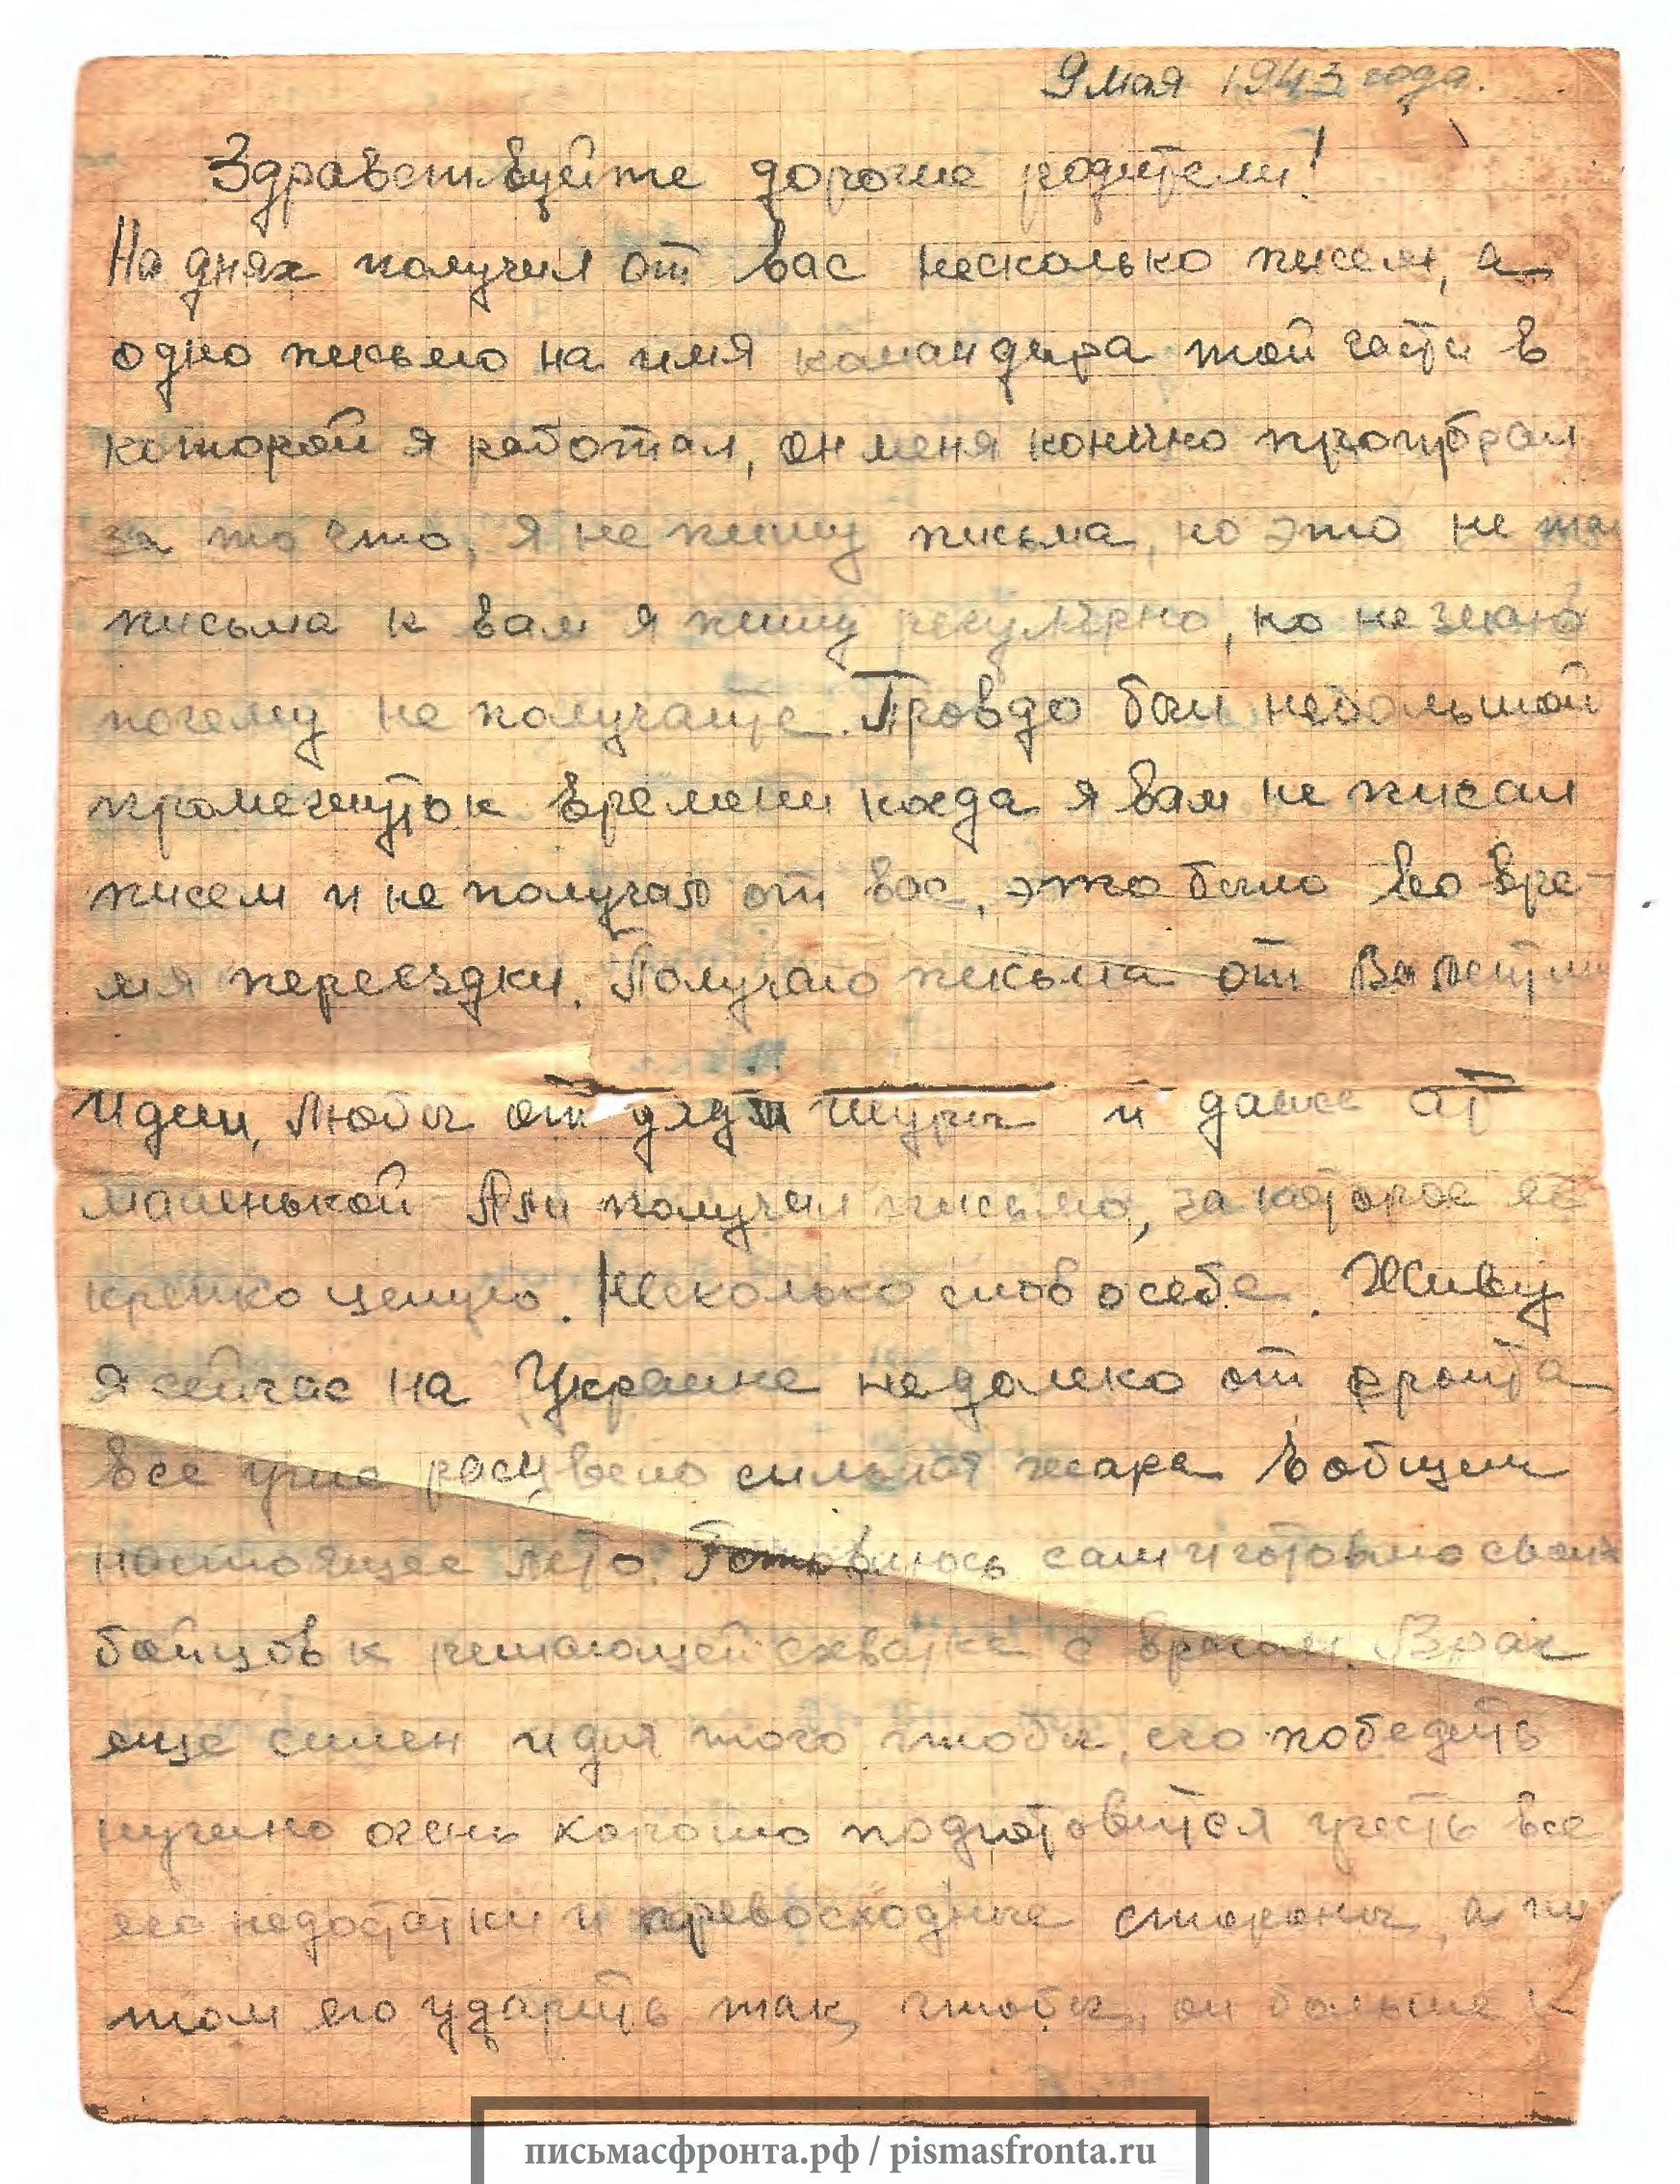 9 мая 1943 года.
Здравствуйте дорогие родители!
На днях получил от вас несколько писем, а
одно письмо на имя командира той части в
которой я работал, он меня конечно пропубрал
за то что, я не пишу письма, но это не так
письма к вам я пишу регулярно, но не знаю
почему не получаите. Правдо был небольшой
промежуток времени когда я вам не писал
писем и не получал от вас, это было во вре-
мя переездки. Получаю письма от Валентины
Идеи, Любы от дяди Шуры и даже от
маленькой Али получил письмо, за которое её
крепко целую. Несколько слов о себе. Живу
я сейчас на Украине недалеко от фронта
все уже расцвело сильная жара вобщем
настоящее лето. Готовлюсь сам и готовлю своих
бойцов к решающей схватке с врагом. Враг
еще силен и для того чтобы, его победить
нужно очень хорошо подготовится учесть все
его недостатки и превосходные стороны, а по
том его ударить так, чтобы, он больше н
письмасфронта.рф / pismasfronta.ru